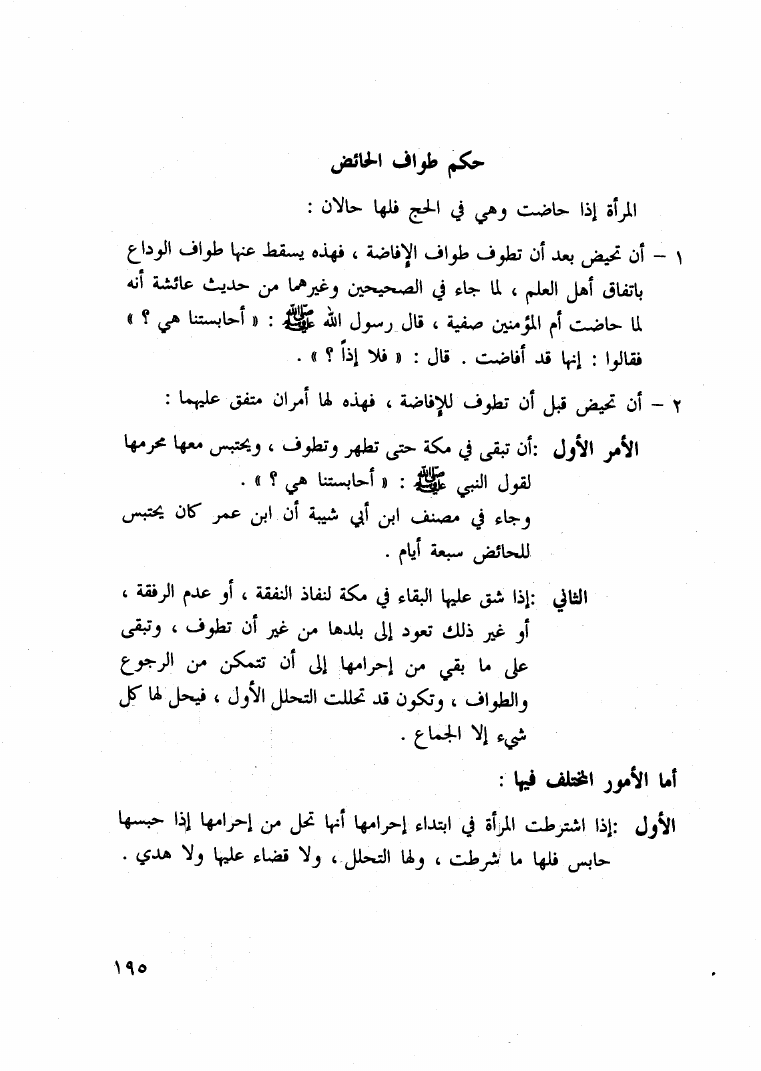 حكم طواف الحائض
المرأة إذا حاضت وهي في الحج فلها حالان :
١ – أن تحيض بعد أن تطوف طواف الإفاضة ، فهذه يسقط عنها طواف الوداع
باتفاق أهل العلم ، لما جاء في الصحيحين وغيرهما من حديث عائشة أنه
لما حاضت أم المؤمنين صفية ، قال رسول الله ﷺ : « أحابستنا هي ؟ »
فقالوا : إنها قد أفاضت . قال : « فلا إذاً ؟ » .
٢ – أن تحيض قبل أن تطوف للإفاضة ، فهذه لها أمران متفق عليهما :
الأمر الأول :أن تبقى في مكة حتى تطهر وتطوف ، ويحتبس معها محرمها
لقول النبي ﷺ : « أحابستنا هي ؟ » .
وجاء في مصنف ابن أبي شيبة أن ابن عمر كان يحتبس
للحائض سبعة أيام .
الثاني :إذا شق عليها البقاء في مكة لنفاذ النفقة ، أو عدم الرفقة ،
أو غير ذلك تعود إلى بلدها من غير أن تطوف ، وتبقى
على ما بقي من إحرامها إلى أن تتمكن من الرجوع
والطواف ، وتكون قد تحللت التحلل الأول ، فيحل لها كل
شيء إلا الجماع .
أما الأمور المختلف فيها :
الأول :إذا اشترطت المرأة في ابتداء إحرامها أنها تحل من إحرامها إذا حبسها
حابس فلها ما شرطت ، ولها التحلل ، ولا قضاء عليها ولا هدي .
١٩٥